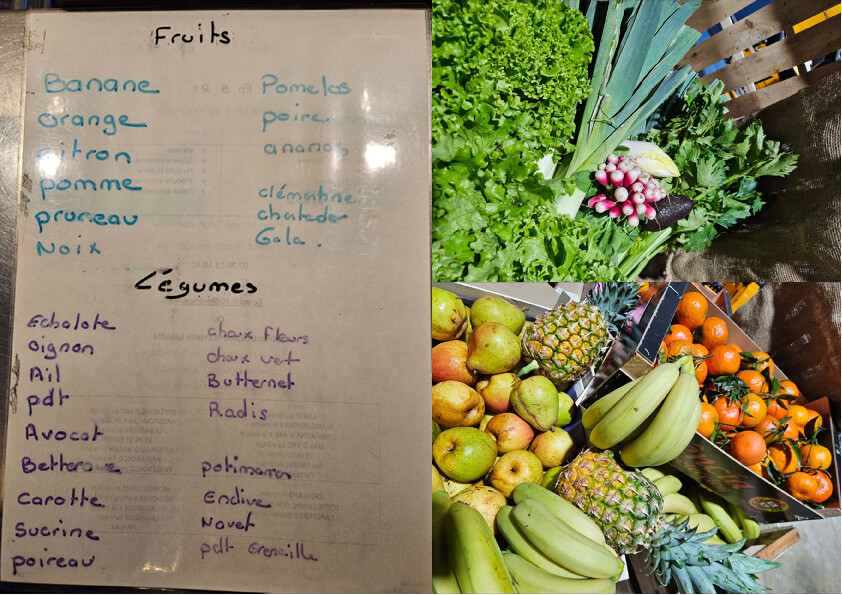 Fruits
Banane
orange
citron
pomme
pruneau
Noix
Pomelos
poire
ananas
clémentine
Gala.
Légumes
Echalote
oignon
Ail
pdt
Avocat
Betterave
Carotte
Sucrine
poireau
choux fleurs
choux vert
Butternet
Radis
potimaron
Endive
Navet
pdt Grenaille